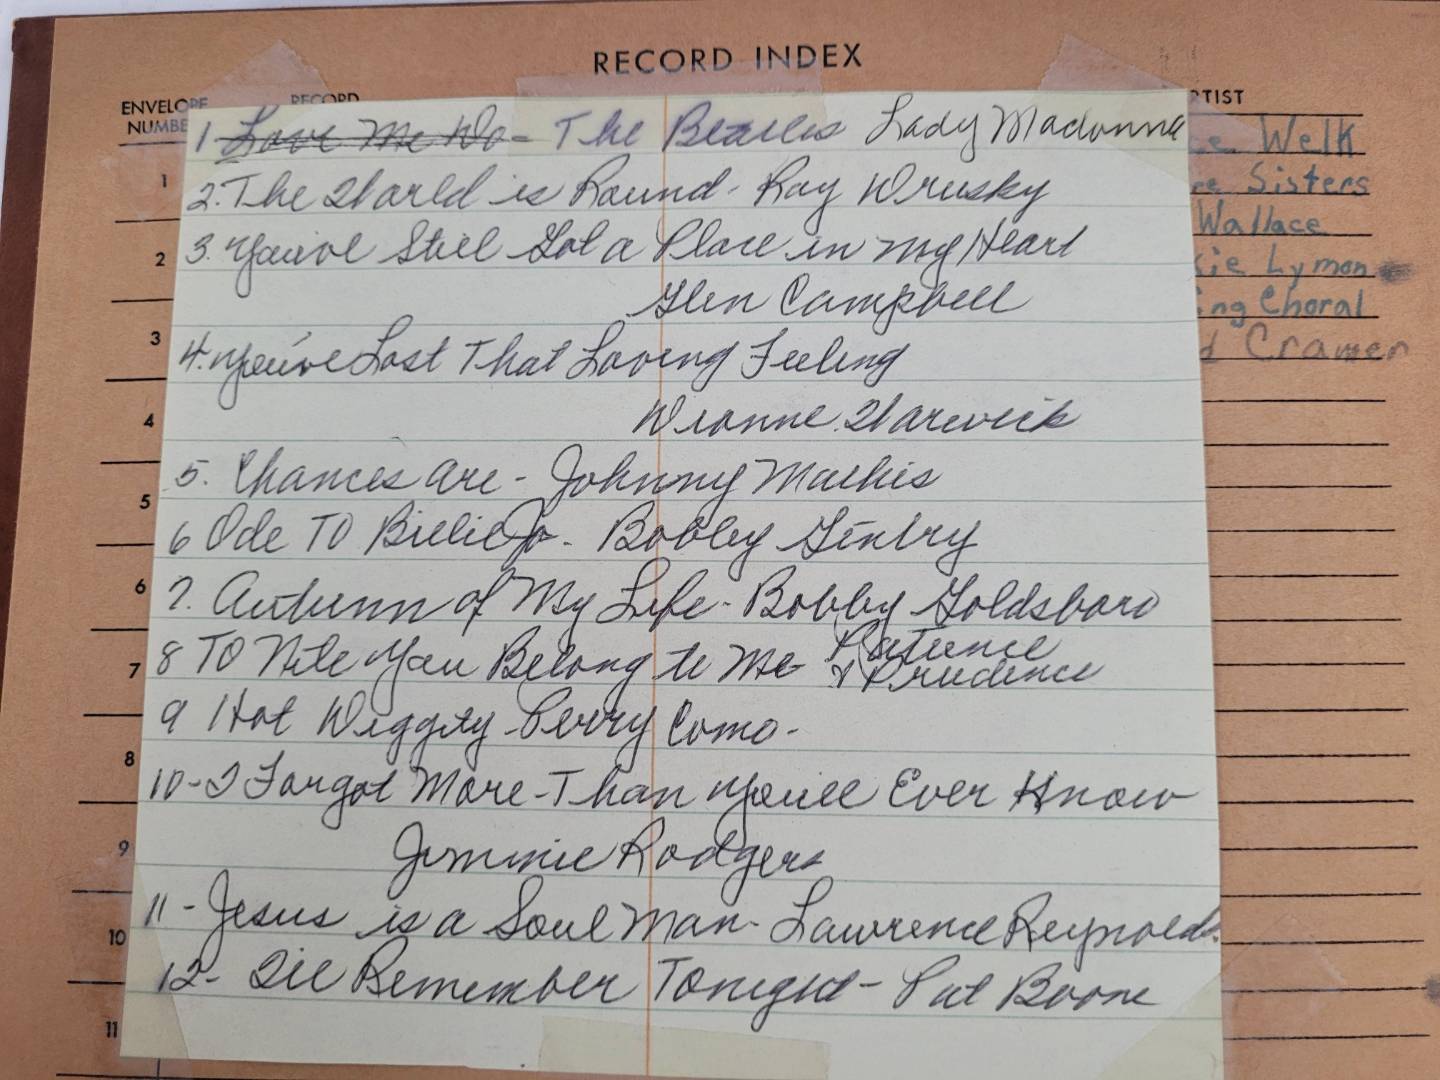 RECORD INDEX
ENVELOPE RECORD RTIST
NUMBE
1 Love Me Do - The Beatles Lady Madonna
ce Welk
1
2. The World is Round - Roy Drusky
re Sisters
3. You've Still Got a Place in My Heart
Wallace
2
kie Lyman
Glen Campbell
ing Choral
3
4. You've Lost That Loving Feeling
d Cramer
Dionne Warwick
4
5. Chances are - Johnny Mathis
5
6 Ode To Billie Jo - Bobby Gentry
7. Autumn of My Life - Bobby Goldsboro
6
8 To Nite You Belong to Me - Patience
& Prudence
7
9 Hot Diggity - Perry Como -
8
10 - I Forgot More - Than You'll Ever Know
Jimmie Rodgers
9
11 - Jesus is a Soul Man - Lawrence Reynolds
10
12 - I'll Remember Tonight - Pat Boone
11